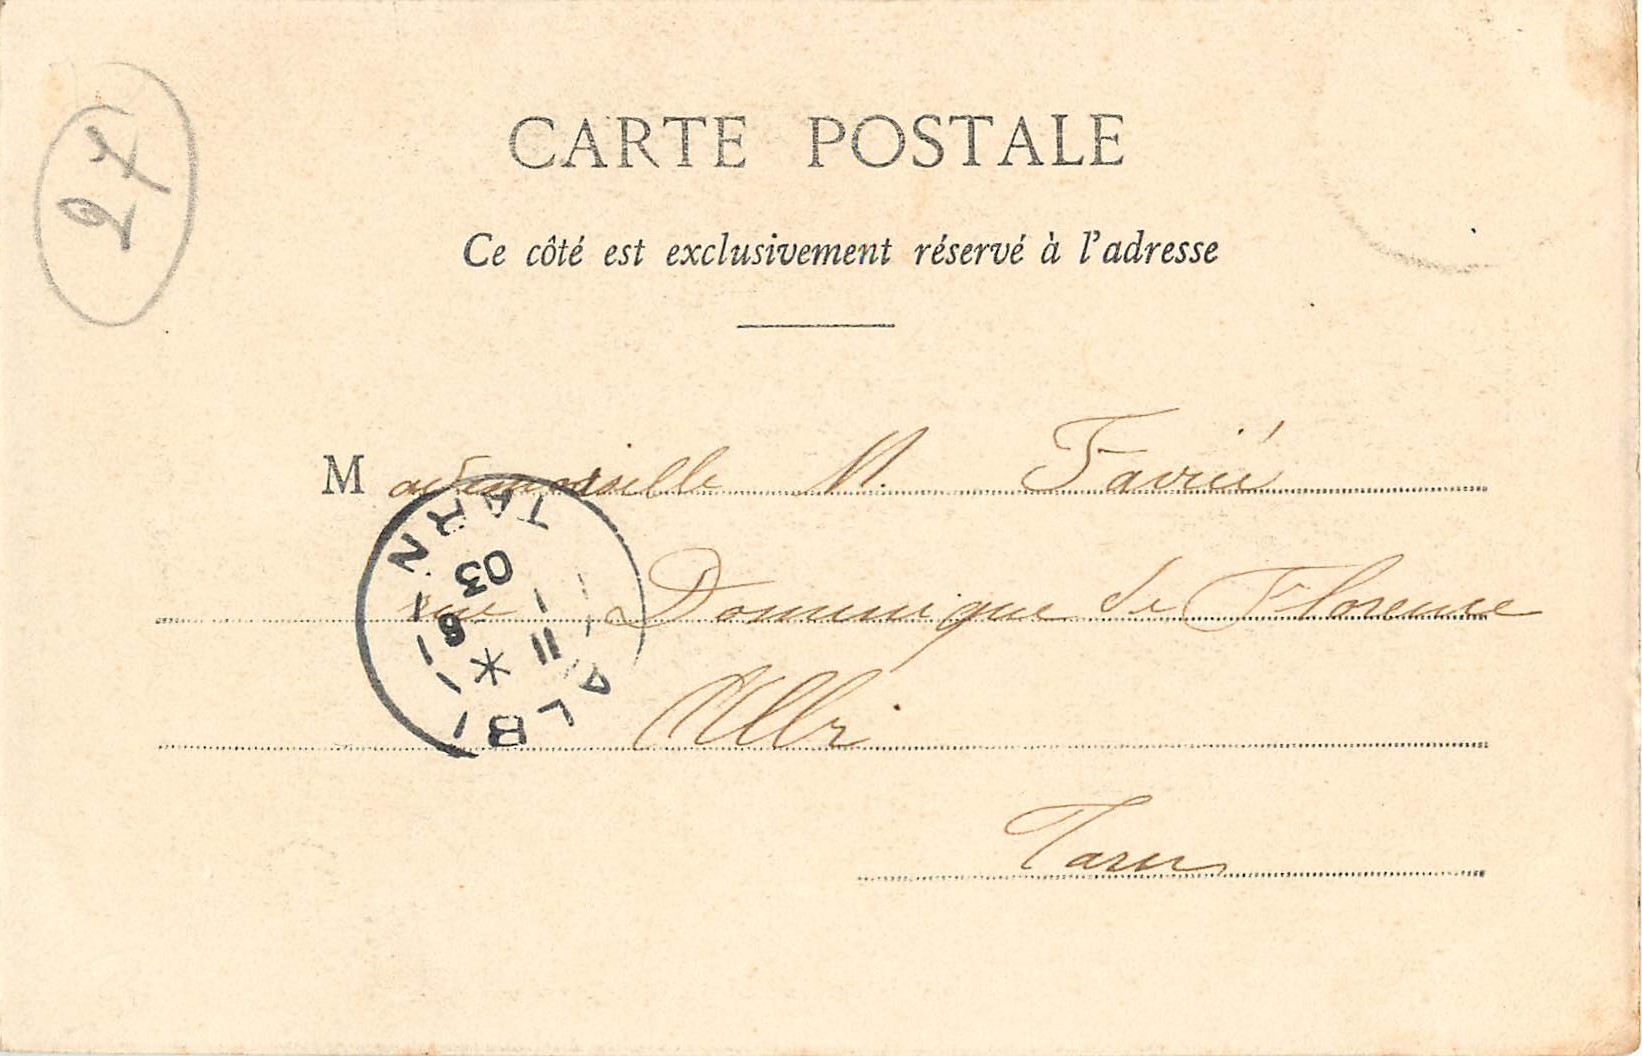 27
CARTE POSTALE
Ce côté est exclusivement réservé à l'adresse
Mademoiselle M. Favié
rue Dominique de Florence
Albi
Tarn
ALBI
TARN
11
*
03